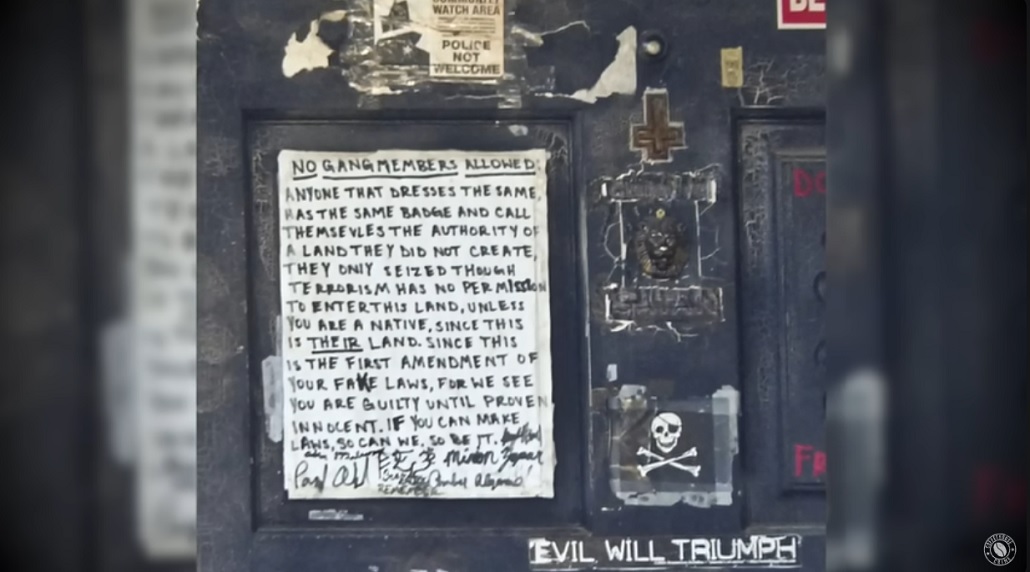 COMMUNITY
WATCH AREA
POLICE
NOT
WELCOME
NO GANGMEMBERS ALLOWED:
ANYONE THAT DRESSES THE SAME,
HAS THE SAME BADGE AND CALL
THEMSEVLES THE AUTHORITY OF
A LAND THEY DID NOT CREATE,
THEY ONLY SEIZED THOUGH
TERRORISM HAS NO PERMISSION
TO ENTER THIS LAND, UNLESS
YOU ARE A NATIVE, SINCE THIS
IS THEIR LAND. SINCE THIS
IS THE FIRST AMENDMENT OF
YOUR FAKE LAWS, FOR WE SEE
YOU ARE GUILTY UNTIL PROVEN
INNOCENT. IF YOU CAN MAKE
LAWS, SO CAN WE. SO BE IT.
EVIL WILL TRIUMPH